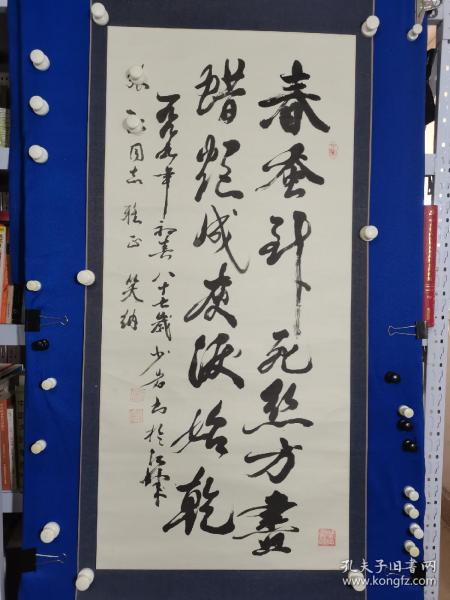 春蚕到死丝方盡
蜡炬成灰淚始乾
年初春八十七歲少岩书於江城
同志雅正 笑纳
孔夫子旧书网
www.kongfz.com